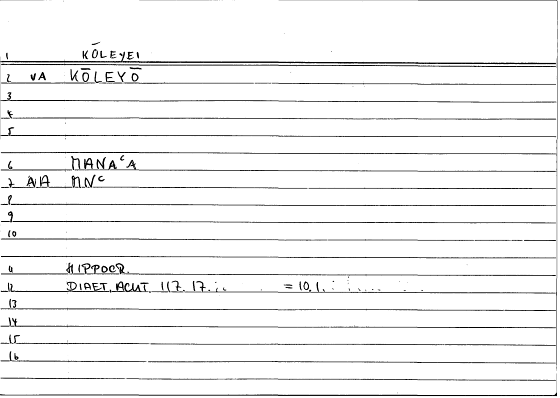 1 KŌLEYEI
2 VA KŌLEYŌ
3
4
5
6 MANAᶜA
7 AIA MNᶜ
8
9
10
11 HIPPOCR.
12 DIAET. ACUT. 117. 17. = 10.1.
13
14
15
16